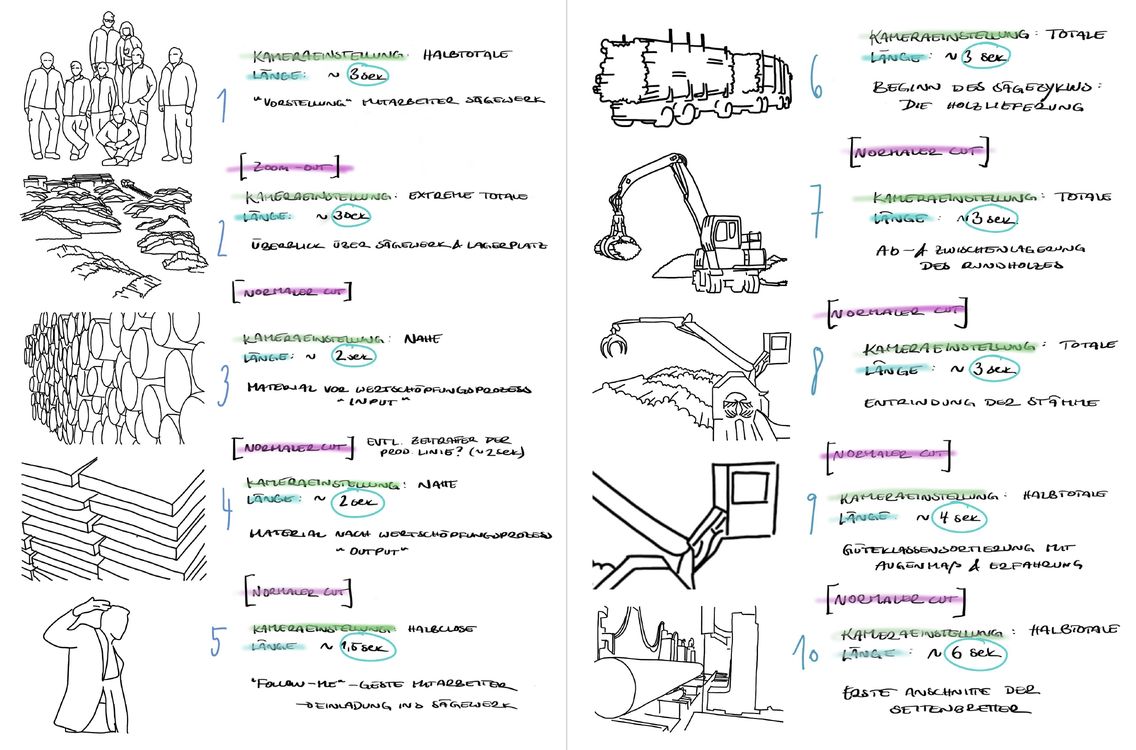 1
KAMERAEINSTELLUNG: HALBTOTALE
LÄNGE: ~ 3 sek
"VORSTELLUNG" MITARBEITER SÄGEWERK
[ZOOM-OUT]
2
KAMERAEINSTELLUNG: EXTREME TOTALE
LÄNGE: ~ 3 sek
ÜBERBLICK ÜBER SÄGEWERK & LAGERPLATZ
[NORMALER CUT]
3
KAMERAEINSTELLUNG: NAHE
LÄNGE: ~ 2 sek
MATERIAL VOR WERTSCHÖPFUNGSPROZESS
"INPUT"
[NORMALER CUT] EVTL. ZEITRAFER DER
PROD. LINIE? (~2 sek)
4
KAMERAEINSTELLUNG: NAHE
LÄNGE: ~ 2 sek
MATERIAL NACH WERTSCHÖPFUNGSPROZESS
"OUTPUT"
[NORMALER CUT]
5
KAMERAEINSTELLUNG: HALBCLOSE
LÄNGE ~ 1,5 sek
"FOLLOW-ME"-GESTE MITARBEITER
→ EINLADUNG INS SÄGEWERK
6
KAMERAEINSTELLUNG: TOTALE
LÄNGE: ~ 3 sek
BEGINN DES SÄGEZYKLUS:
DIE HOLZLIEFERUNG
[NORMALER CUT]
7
KAMERAEINSTELLUNG: TOTALE
LÄNGE: ~ 3 sek
AB- & ZWISCHENLAGERUNG
DES RUNDHOLZES
[NORMALER CUT]
8
KAMERAEINSTELLUNG: TOTALE
LÄNGE: ~ 3 sek
ENTRINDUNG DER STÄMME
[NORMALER CUT]
9
KAMERAEINSTELLUNG: HALBTOTALE
LÄNGE ~ 4 sek
GÜTEKLASSENSORTIERUNG MIT
AUGENMAß & ERFAHRUNG
[NORMALER CUT]
10
KAMERAEINSTELLUNG: HALBTOTALE
LÄNGE: ~ 6 sek
ERSTE ANSCHNITTE DER
SEITENBRETTER